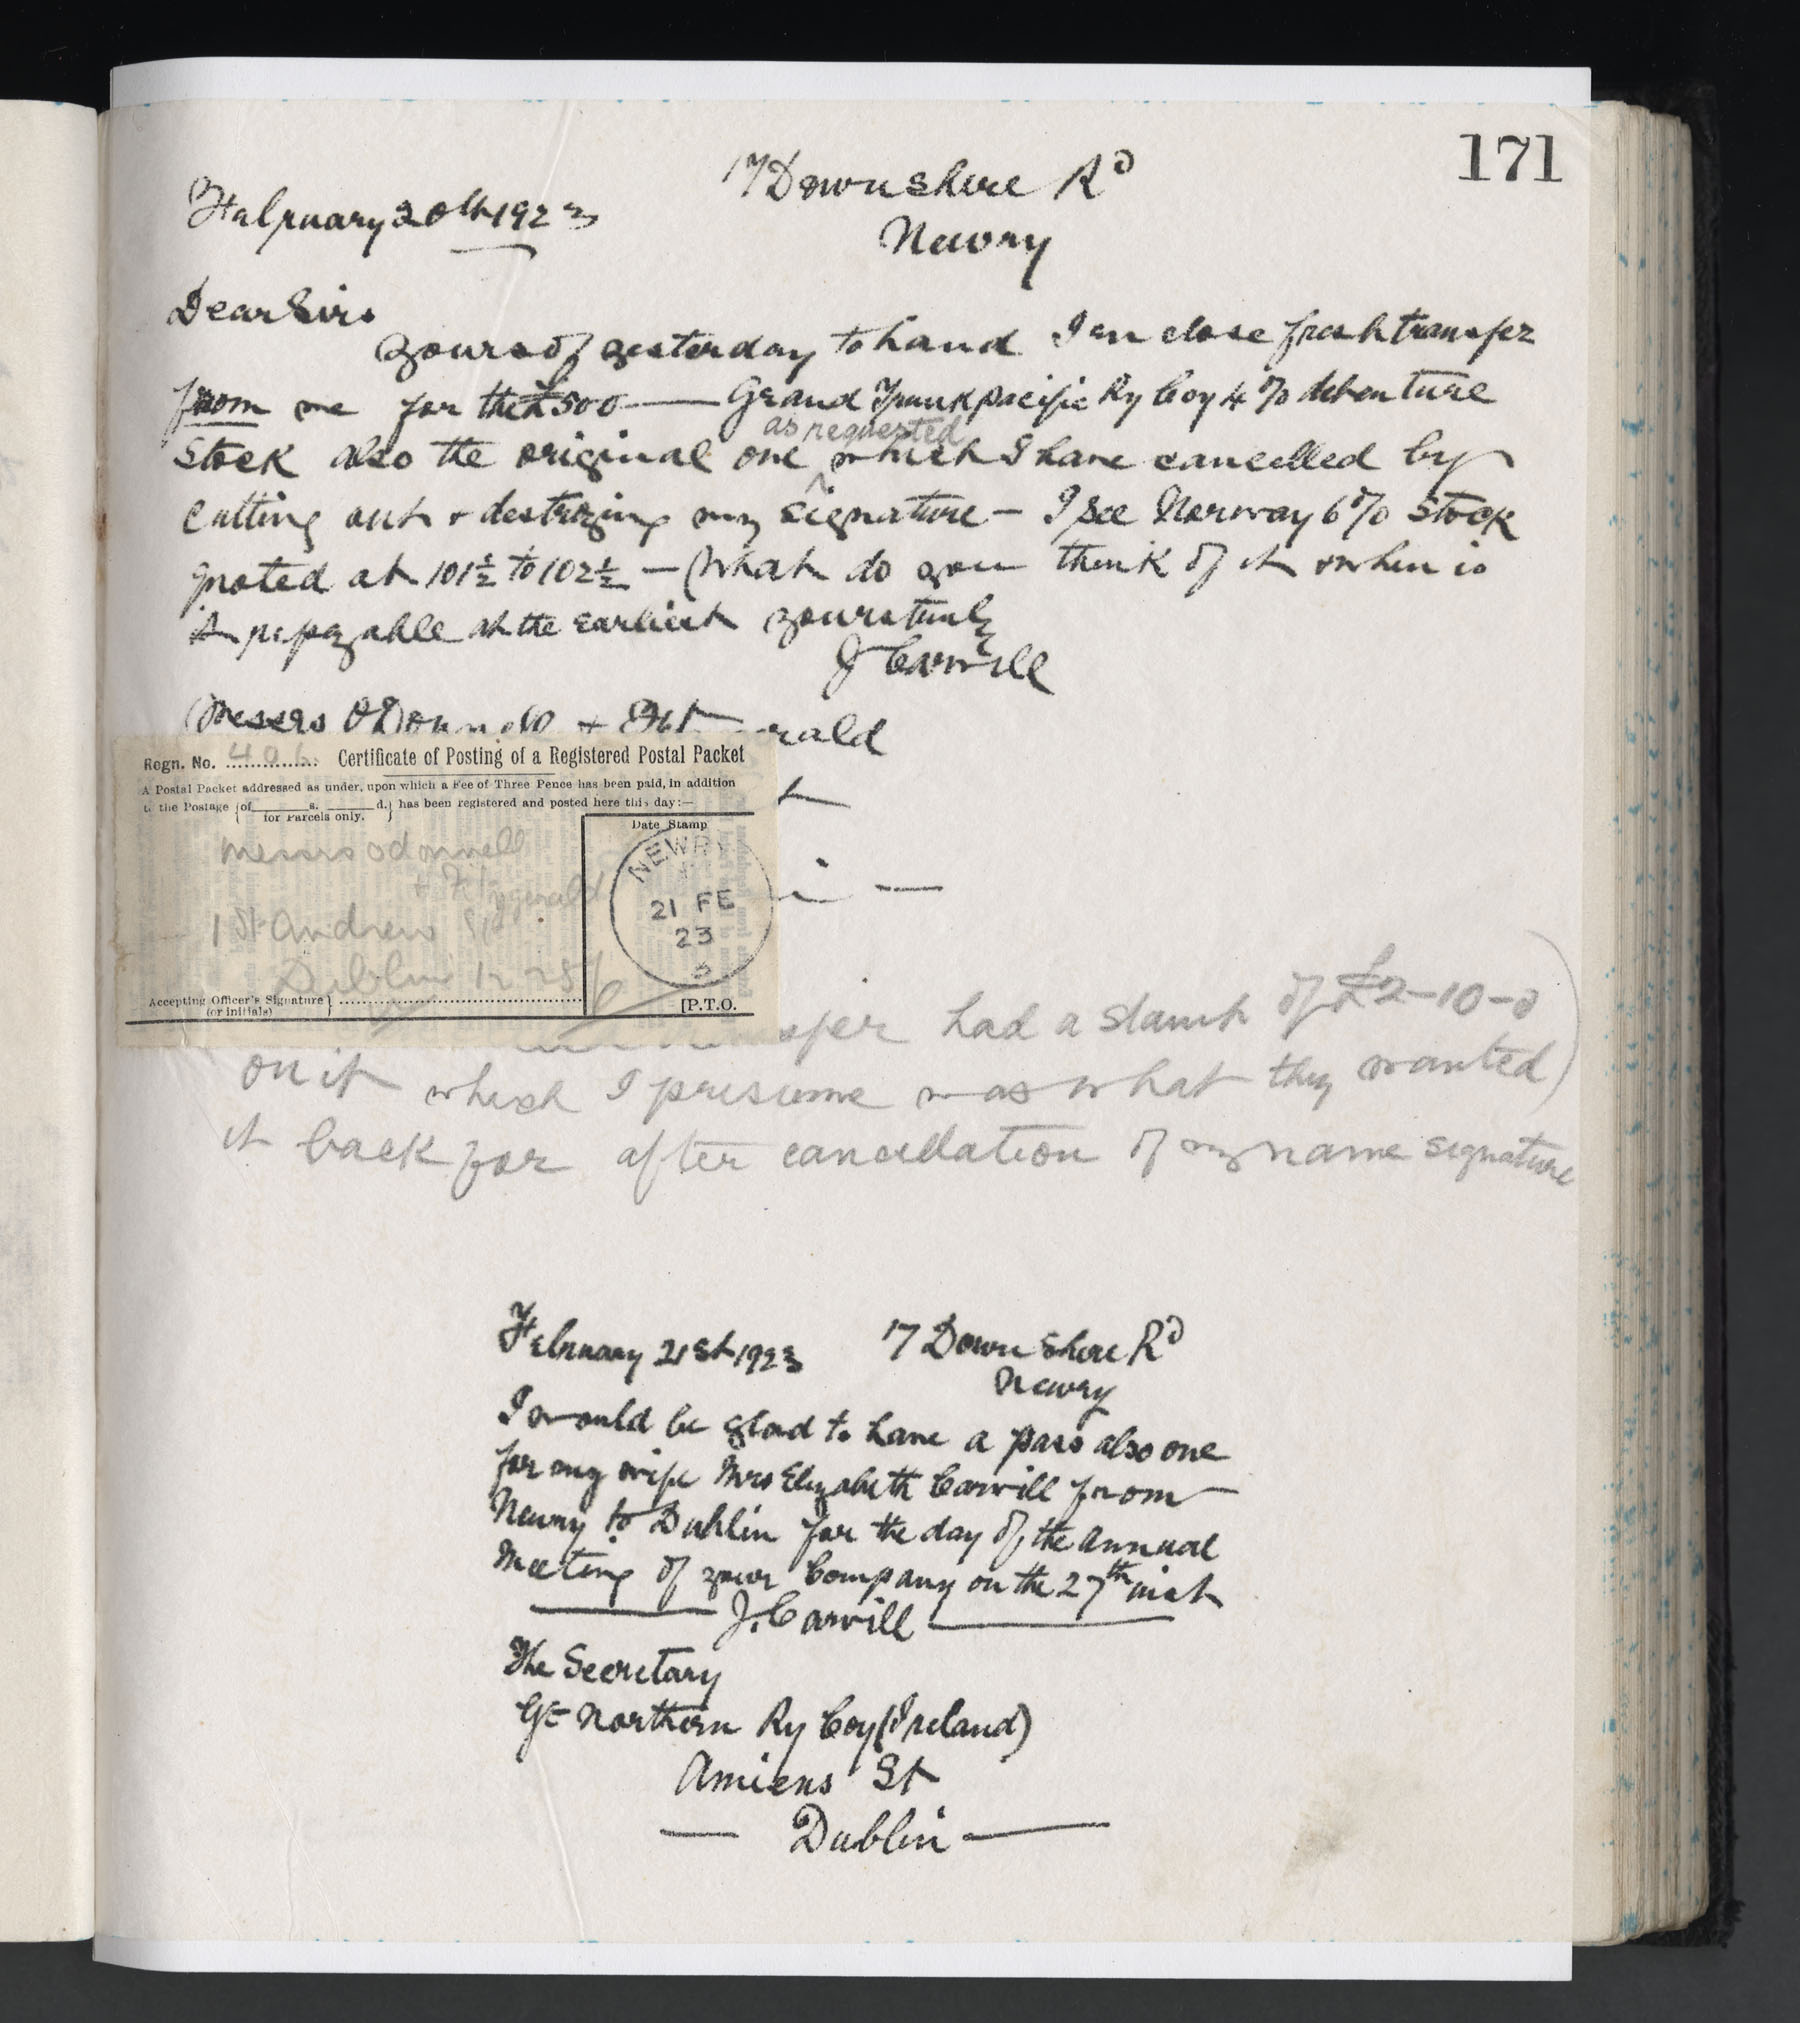 171
17 Downshire Rd
February 20th 1923
Newry
Dear Sirs
yours of yesterday to hand I enclose fresh transfer
from me for the £500 — Grand Trunk pacific Ry Coy 4% debenture
as requested
Stock also the original one which I have cancelled by
cutting out + destroying my signature — I see Norway 6% Stock
quoted at 101½ to 102½ — What do you think of it + when is
it repayable at the earliest yours truly
J Carvill
Messrs O'Donnell + Fitzgerald
Regn. No. 406 Certificate of Posting of a Registered Postal Packet
A Postal Packet addressed as under, upon which a Fee of Three Pence has been paid, in addition
to the Postage {of ____ s. ____ d.} has been registered and posted here this day:—
for Parcels only.
Date Stamp
Messrs Odonnell
+ Fitzgerald
1 St Andrew St
Dublin
NEWRY
21 FE
23
Accepting Officer's Signature }
(or initials)
[P.T.O.
had a stamp of £2-10-0
on it which I presume was what they wanted
it back for after cancellation of my name signature
February 21st 1923 17 Downshire Rd
Newry
I would be glad to have a pass also one
for my wife Mrs Elizabeth Carvill from
Newry to Dublin for the day of the annual
Meeting of your Company on the 27th inst
J. Carvill
The Secretary
Gt Northern Ry Coy (Ireland)
Amiens St
— Dublin —